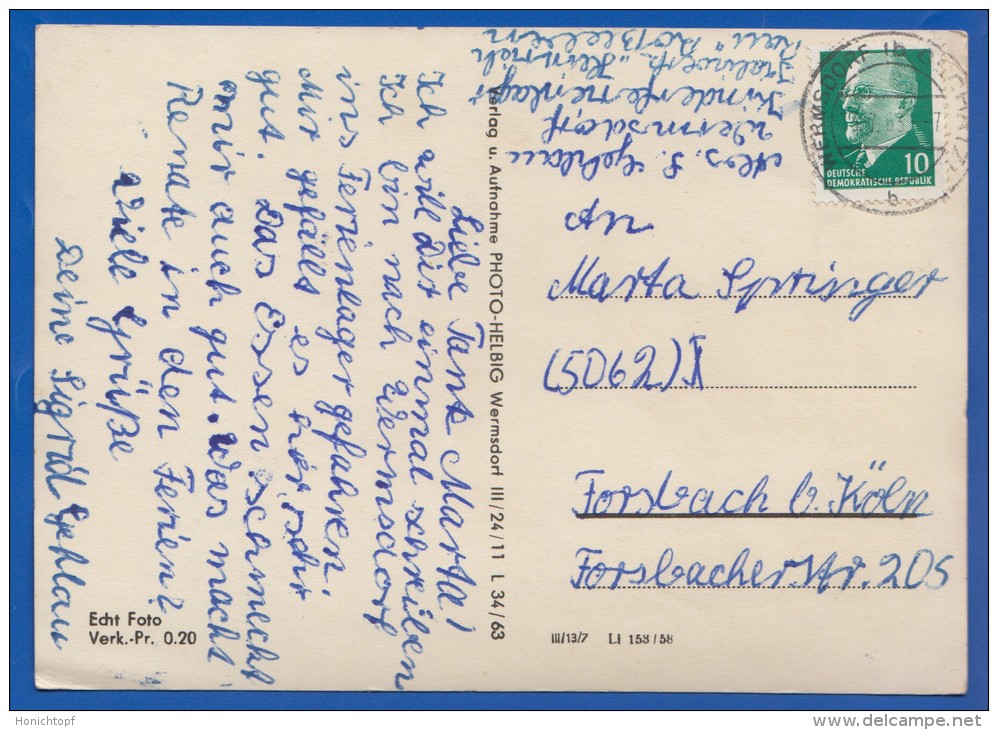 Liebe Tante Marta!
Ich will Dir einmal schreiben
Ich bin nach Wermsdorf
ins Ferienlager gefahren.
Mir gefällt es hier sehr
gut. Das Essen schmeckt
mir auch gut. Was macht
Renate in den Ferien?
Viele Grüße
Deine Sigrid Gehlau
Echt Foto
Verk.-Pr. 0.20
Verlag u. Aufnahme PHOTO-HELBIG Wermsdorf III/24/11 L 34/63
Abs. S. Gehlau
Wermsdorf
Kinderferienlager
"Heinrich
Rau"
WERMSDORF
b
10
DEUTSCHE
DEMOKRATISCHE REPUBLIK
An
Marta Springer
(5062)
Forsbach b. Köln
Forsbacherstr. 205
III/13/7 LI 158/58
Honichtopf
www.delcampe.net